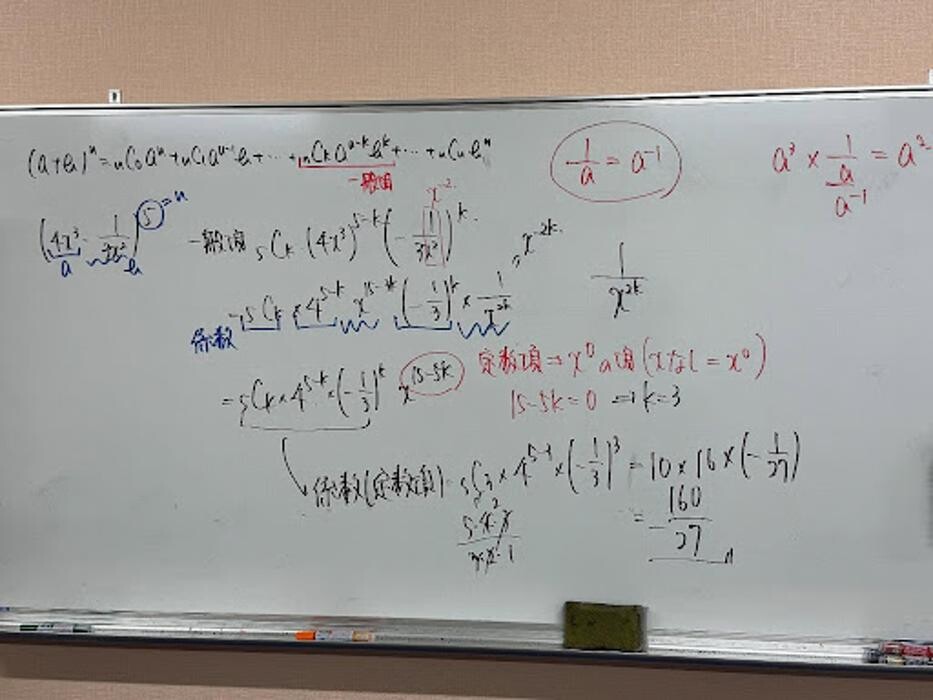 (a+b)ⁿ = ₙC₀aⁿ + ₙC₁aⁿ⁻¹b + ⋯ + ₙCₖaⁿ⁻ᵏbᵏ + ⋯ + ₙCₙbⁿ
一般項
1/a = a⁻¹
a³ × 1/a = a²
a⁻¹
(4x³ - 1/3x²)⁵ = n
a b
一般項 ₅Cₖ (4x³)⁵⁻ᵏ (-1/3x²)ᵏ
x⁻²
= ₅Cₖ × 4⁵⁻ᵏ x¹⁵⁻³ᵏ (-1/3)ᵏ × 1/x²ᵏ = x⁻²ᵏ
1/x²ᵏ
係数
= ₅Cₖ × 4⁵⁻ᵏ × (-1/3)ᵏ x¹⁵⁻⁵ᵏ
定数項 ⇒ x⁰の項 (xなし = x⁰)
15-5k=0 ⇒ k=3
係数(定数項) = ₅C₃ × 4⁵⁻³ × (-1/3)³ = 10 × 16 × (-1/27)
5·4·3/3·2·1
2
= -160/27